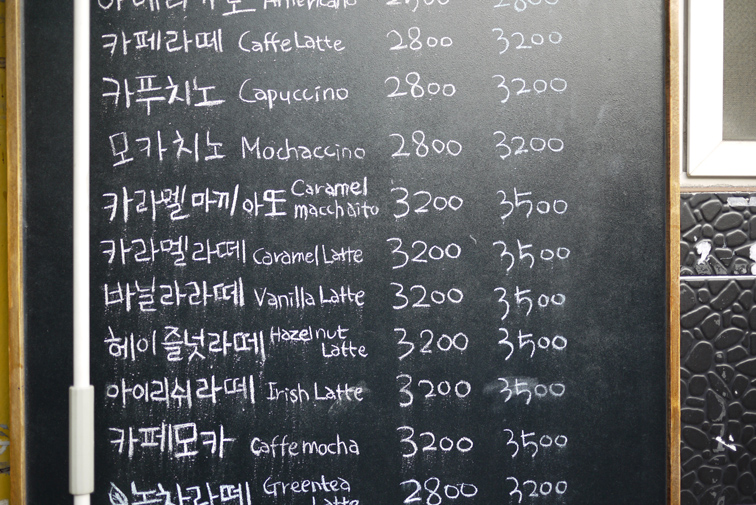 아메리카노 Americano 2300 2800
카페라떼 Caffe Latte 2800 3200
카푸치노 Capuccino 2800 3200
모카치노 Mochaccino 2800 3200
카라멜마끼아또 Caramel macchaito 3200 3500
카라멜라떼 Caramel Latte 3200 3500
바닐라라떼 Vanilla Latte 3200 3500
헤이즐넛라떼 Hazelnut Latte 3200 3500
아이리쉬라떼 Irish Latte 3200 3500
카페모카 Caffe mocha 3200 3500
녹차라떼 Greentea Latte 2800 3200